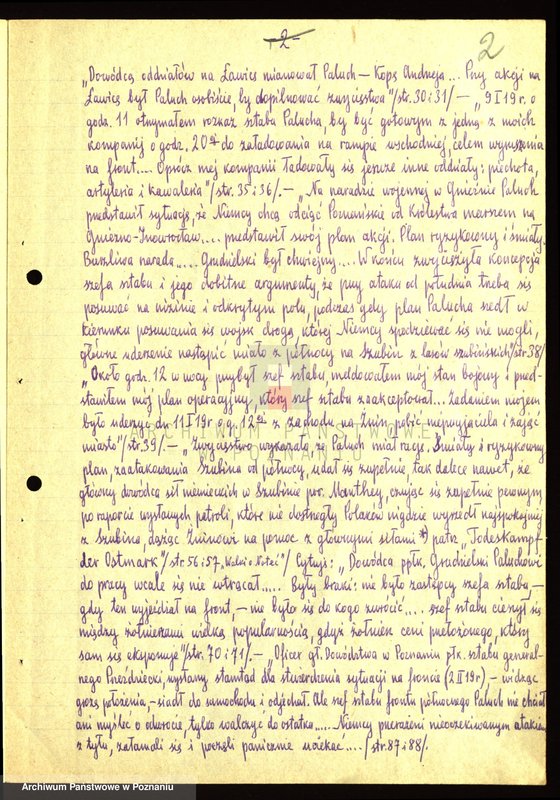 -2-
2
„Dowódcą oddziałów na Ławicę mianował Paluch – Kopę Andrzeja... Przy akcji na
Ławicę był Paluch osobiście, by dopilnować zwycięstwa"/str. 30 i 31/ – „9 I 19 r. o
godz. 11 otrzymałem rozkaz sztabu Palucha, by być gotowym z jedną z moich
kompanij o godz. 20ej do załadowania na rampie wschodniej, celem wyruszenia
na front.... Oprócz mej kompanii ładowały się jeszcze inne oddziały: piechota,
artyleria i kawaleria"/str. 35 i 36/. – „Na naradzie wojennej w Gnieźnie Paluch
przedstawił sytuację, że Niemcy chcą odciąć Poznańskie od Królestwa marszem na
Gniezno-Inowrocław.... przedstawił swój plan akcji. Plan ryzykowny i śmiały.
Burzliwa narada..... Grudzielski był chwiejny.... W końcu zwyciężyła koncepcja
szefa sztabu i jego dobitne argumenty, że przy ataku od południa trzeba się
posuwać na nizinie i odkrytym polu, podczas gdy plan Palucha szedł w
kierunku posuwania się wojsk drogą, której Niemcy spodziewać się nie mogli,
główne uderzenie nastąpić miało z północy na Szubin z lasów szubińskich"/str. 38/
„Około godz. 12 w nocy przybył szef sztabu, meldowałem mój stan bojowy i przed-
stawiłem mój plan operacyjny, który szef sztabu zaakceptował... Zadaniem mojem
było uderzyć dn. 11 I 19 r o g. 12ej z zachodu na Żnin, pobić nieprzyjaciela i zająć
miasto"/str. 39/. – „Zwycięstwo wykazało, że Paluch miał rację. Śmiały i ryzykowny
plan, zaatakowania Szubina od północy, udał się zupełnie, tak dalece nawet, że
główny dowódca sił niemieckich w Szubinie por. Manthey, czując się zupełnie pewnym
po raporcie wysłanych patroli, które nie dostrzegły Polaków nigdzie wyszedł najspokojniej
z Szubina, dążąc Żninowi na pomoc z głównymi siłami *) patrz „Todeskampf
der Ostmark"/str. 56 i 57 „Walki o Noteć"/ Cytuję: „Dowódca ppłk. Grudzielski Paluchowi
do pracy wcale się nie wtrącał..... Były braki: nie było zastępcy szefa sztabu –
gdy ten wyjeżdżał na front, – nie było się do kogo zwrócić.... szef sztabu cieszył się
między żołnierzami wielką popularnością, gdyż żołnierz ceni przełożonego, który
sam się eksponuje"/str. 70 i 71/. – „Oficer gł. Dowództwa w Poznaniu płk. sztabu general-
nego Przeździecki, wysłany stamtąd dla stwierdzenia sytuacji na froncie (2 II 19 r) – widząc
grozę położenia, – siadł do samochodu i odjechał. Ale szef sztabu frontu północnego Paluch nie chciał
ani myśleć o odwrocie, tylko walczyć do ostatka..... Niemcy przerażeni nieoczekiwanym atakiem
z tyłu, załamali się i poczęli panicznie uciekać.... /str. 87 i 88/.
Archiwum Państwowe w Poznaniu